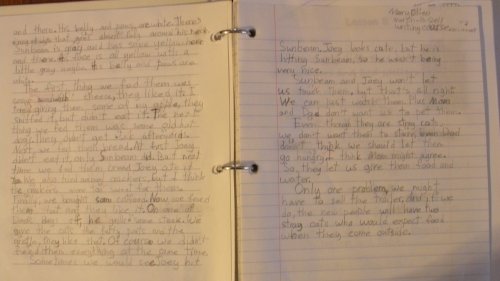 and there. His belly and paws are white. There's
that goes about half around his neck.
Sunbeam is gray and has some yellow here
and there. His face is all yellow with a
little gray maybe. His belly and paws are
white.
The first thing we fed them was
cheese, they liked it. I
tried giving them some of my apple, they
sniffed it, but didn't eat it. The next
thing we fed them was some old hot
dogs, they didn't afterwards.
Next we fed them bread. At first Joey
didn't eat it, only Sunbeam did. But next
time we fed them bread Joey ate it
too. We also fed them chicken, but I think
the crackers were too for them.
Finally, we bought some catfood. Now we feed
them that and they like it. Once
We
give the cats the fatty parts and the
gristle, they like that. Of course we didn't
feed them everything at the same time.
Sometimes we would see Joey hit
Lesson
Sunbeam. Joey looks cute, but he is
hitting Sunbeam, so he wasn't being
very nice.
Sunbeam and Joey won't let
us touch them, but that's all right.
We can just watch them. Plus Mom
and Dad don't want us to pet them.
Even though they are stray cats,
we don't want them to starve,
don't think we should let them
go hungry. I think Mom might agree.
So, they let us give them food and
water.
Only one problem, we might
have to sell the trailer, and if we
do, the new people will have two
stray cats who would expect food
when they come outside.